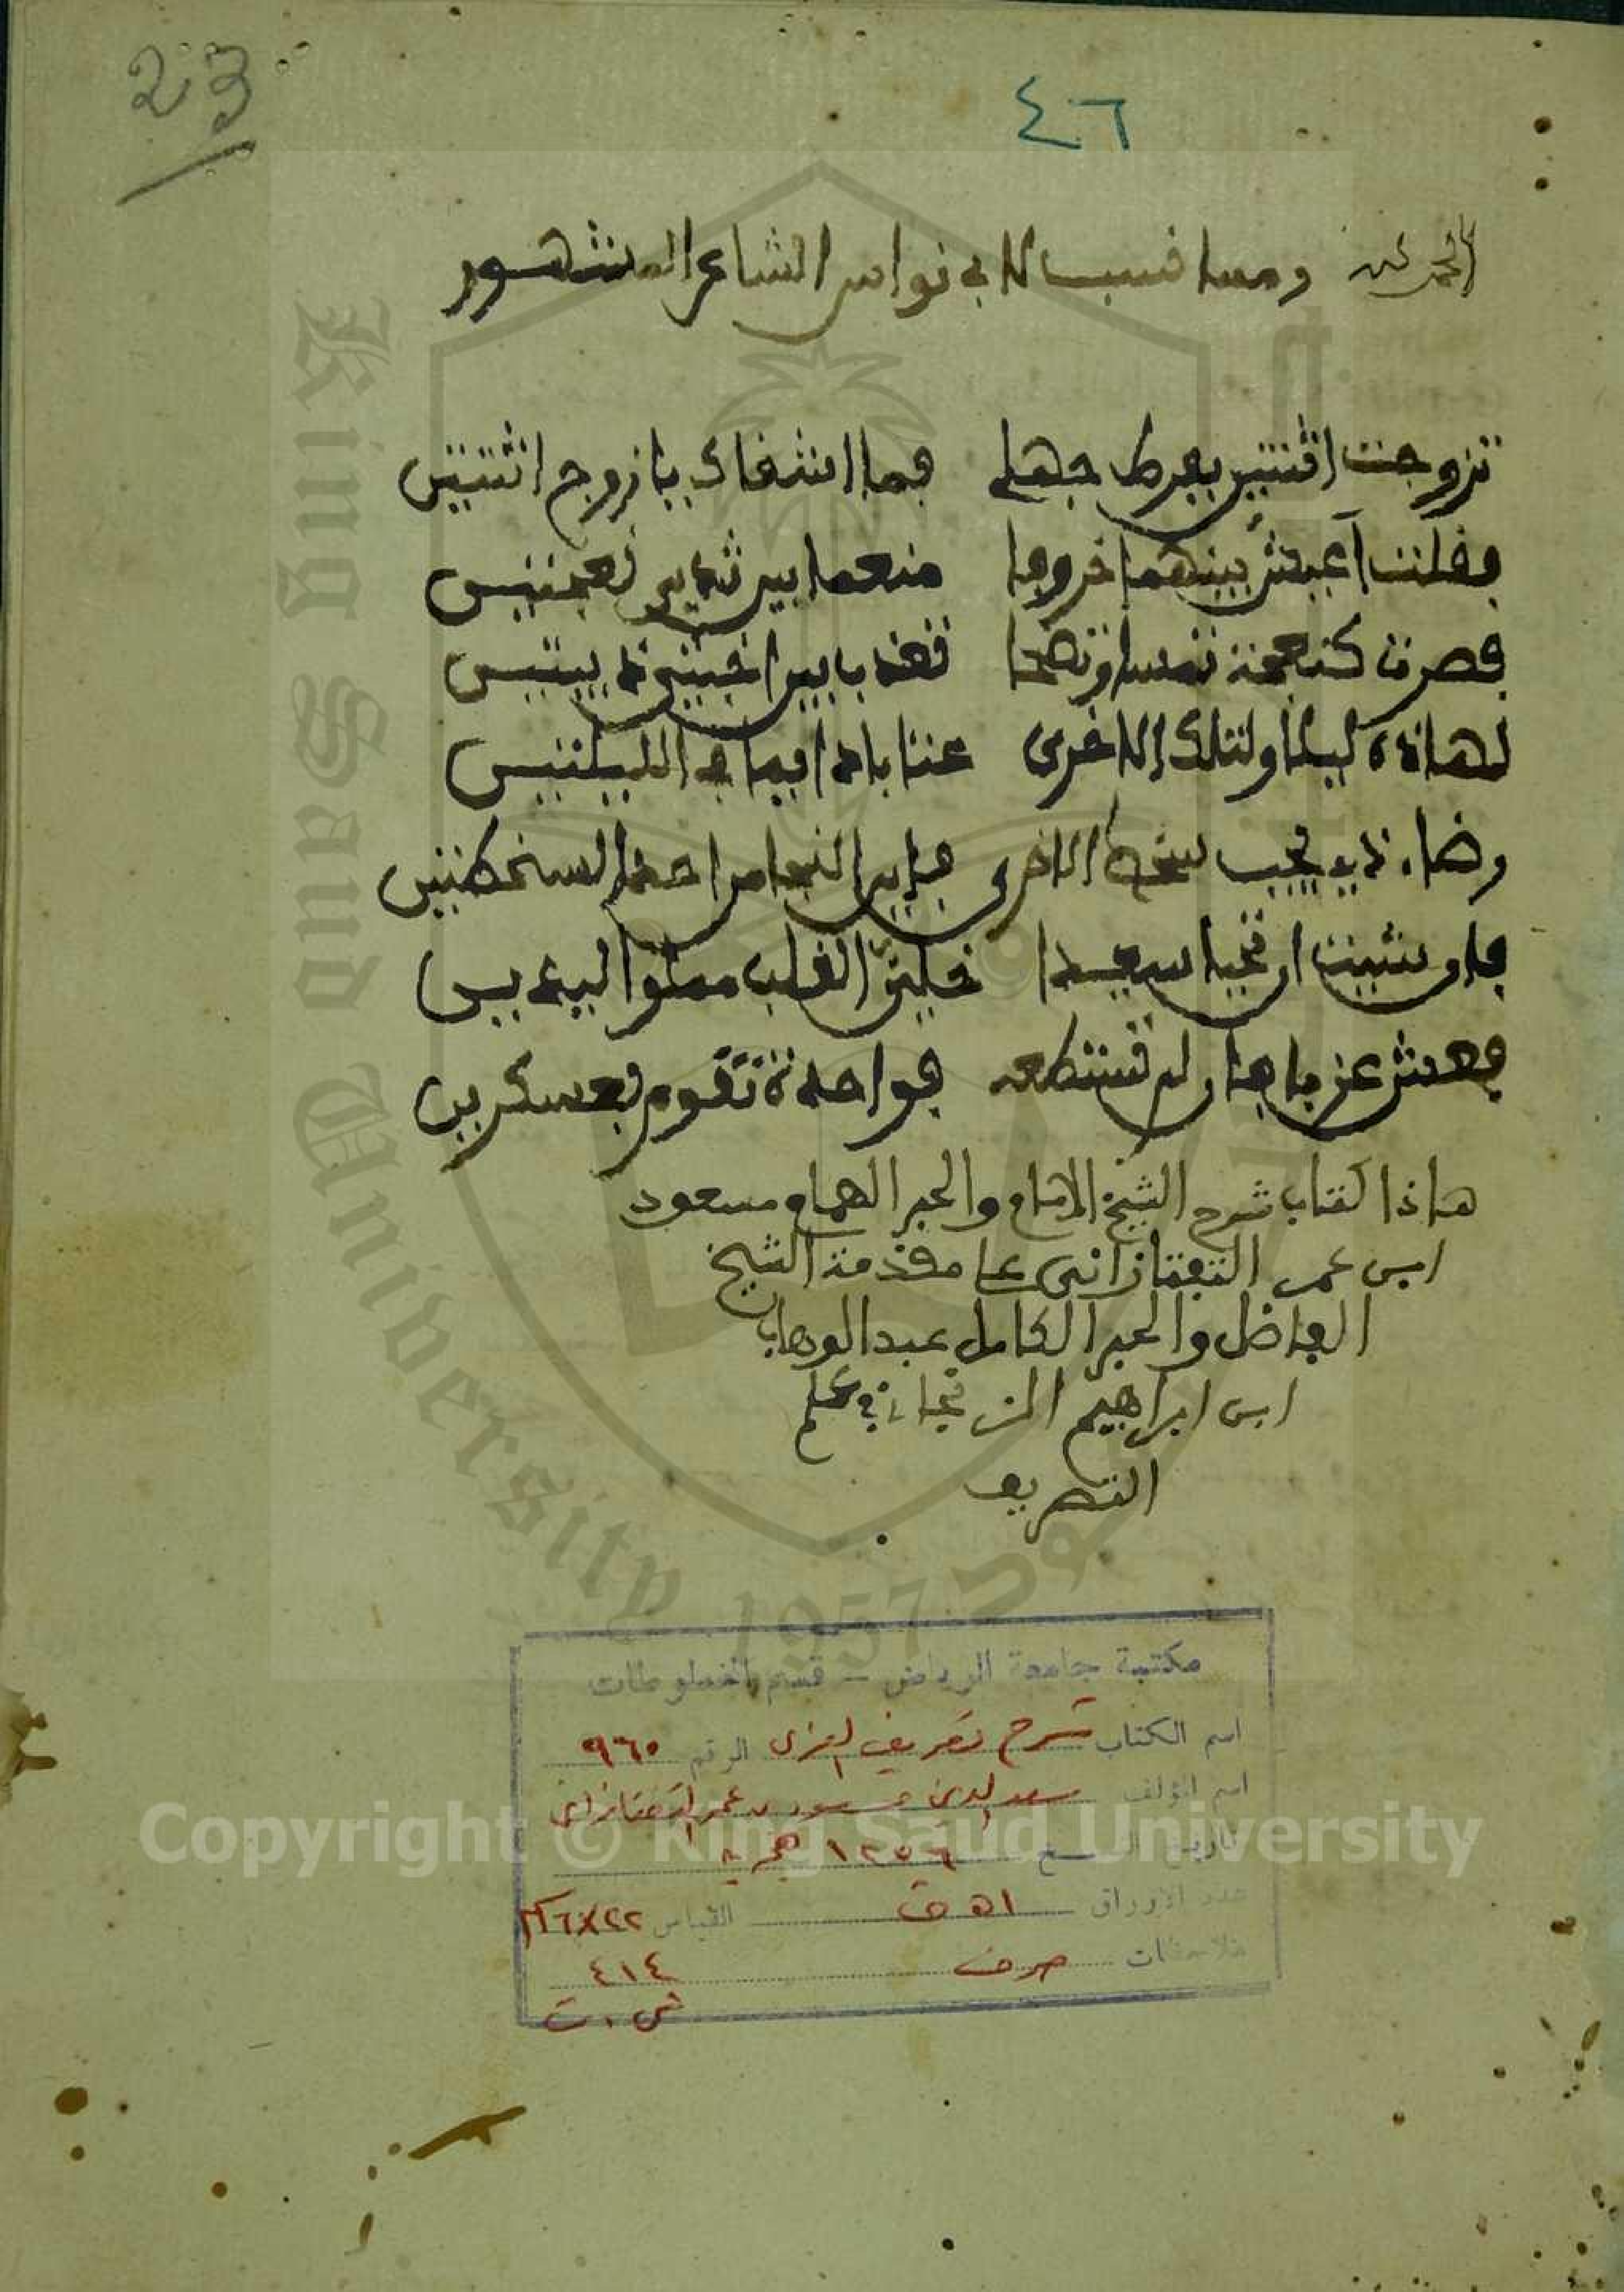 23
٤٦
الحمد لله ومما نسب لابي نواس الشاعر المشهور
تزوجت اثنتين بفرط جهلي فما اشقاك يا زوج اثنتين
فقلت اعيش بينهما خروفا منعما بين ثديي نعجتين
فصرت كنعجة تمسا وتضحا تعذب بين اخبث ذيبتين
لهاذه ليلة ولتلك الاخرى عتابا دايما في الليلتين
رضاء ذي يجيب سخط الاخرى فاين النجا من احد السخطتين
فلو شيت ان تحيا سعيدا خلي القلب مملوا اليدين
فعش عزبا فان لم تستطعه فواحدة تقوم بعسكرين
هاذا كتاب شرح الشيخ الامام والحبر الهمام مسعود
ابن عمر التفتازاني على مقدمة الشيخ
الفاضل والحبر الكامل عبد الوهاب
ابن ابراهيم الزنجاني في علم
التصريف
مكتبة جامعة الرياض - قسم المخطوطات
اسم الكتاب شرح تصريف العزى الرقم ٩٦٥
اسم المؤلف سعد الدين مسعود بن عمر التفتازانى
تاريخ النسخ ١٢٥٦ هجرية
عدد الاوراق ٥١ ق القياس ٢٢×١٦
ملاحظات صرف ٤١٤
ش.ت
King Saud University
1957
Copyright © King Saud University